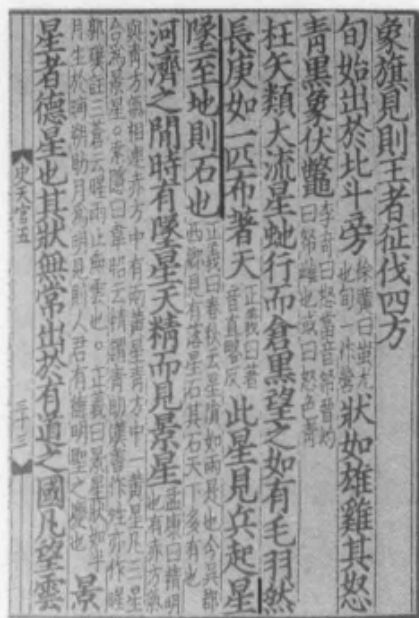 象旗見則王者征伐四方
旬始出於北斗旁
徐廣曰蚩尤
也旬一作營
狀如雄雞其怒
青黑象伏鼈
李奇曰怒當音帑晉灼
曰帑雌也或曰怒色青
枉矢類大流星虵行而倉黑望之如有毛羽然
長庚如一匹布著天
正義曰著
音直畧反
此星見兵起星
墜至地則石也
正義曰春秋云星隕如雨是也今吳郡
西鄉見有落星石其石天下多有也
河濟之間時有墜星天精而見景星
孟康曰精明
也有赤方氣
與青方氣相連赤方中有兩黃星青方中一黃星凡三星
合為景星。索隱曰韋昭云精謂清朗漢書作甠亦作暒
郭璞註三蒼云暒雨止無雲也。正義曰景星狀如半
月生於晦朔助月為明見則人君有德明聖之慶也
景
星者德星也其狀無常出於有道之國凡望雲
史天官五
三十三